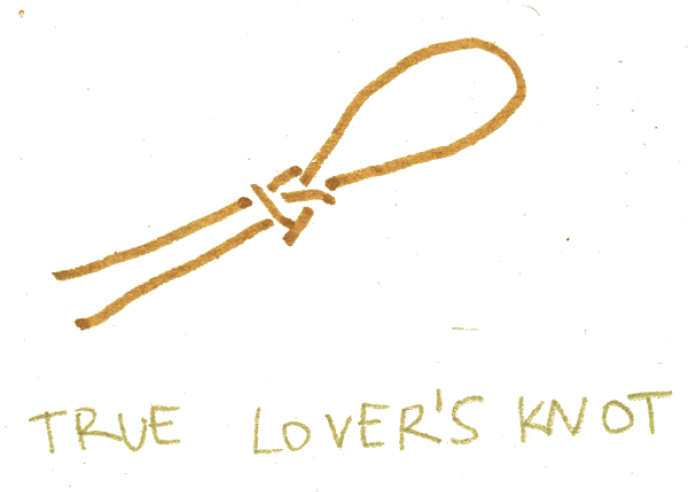 TRUE LOVER'S KNOT